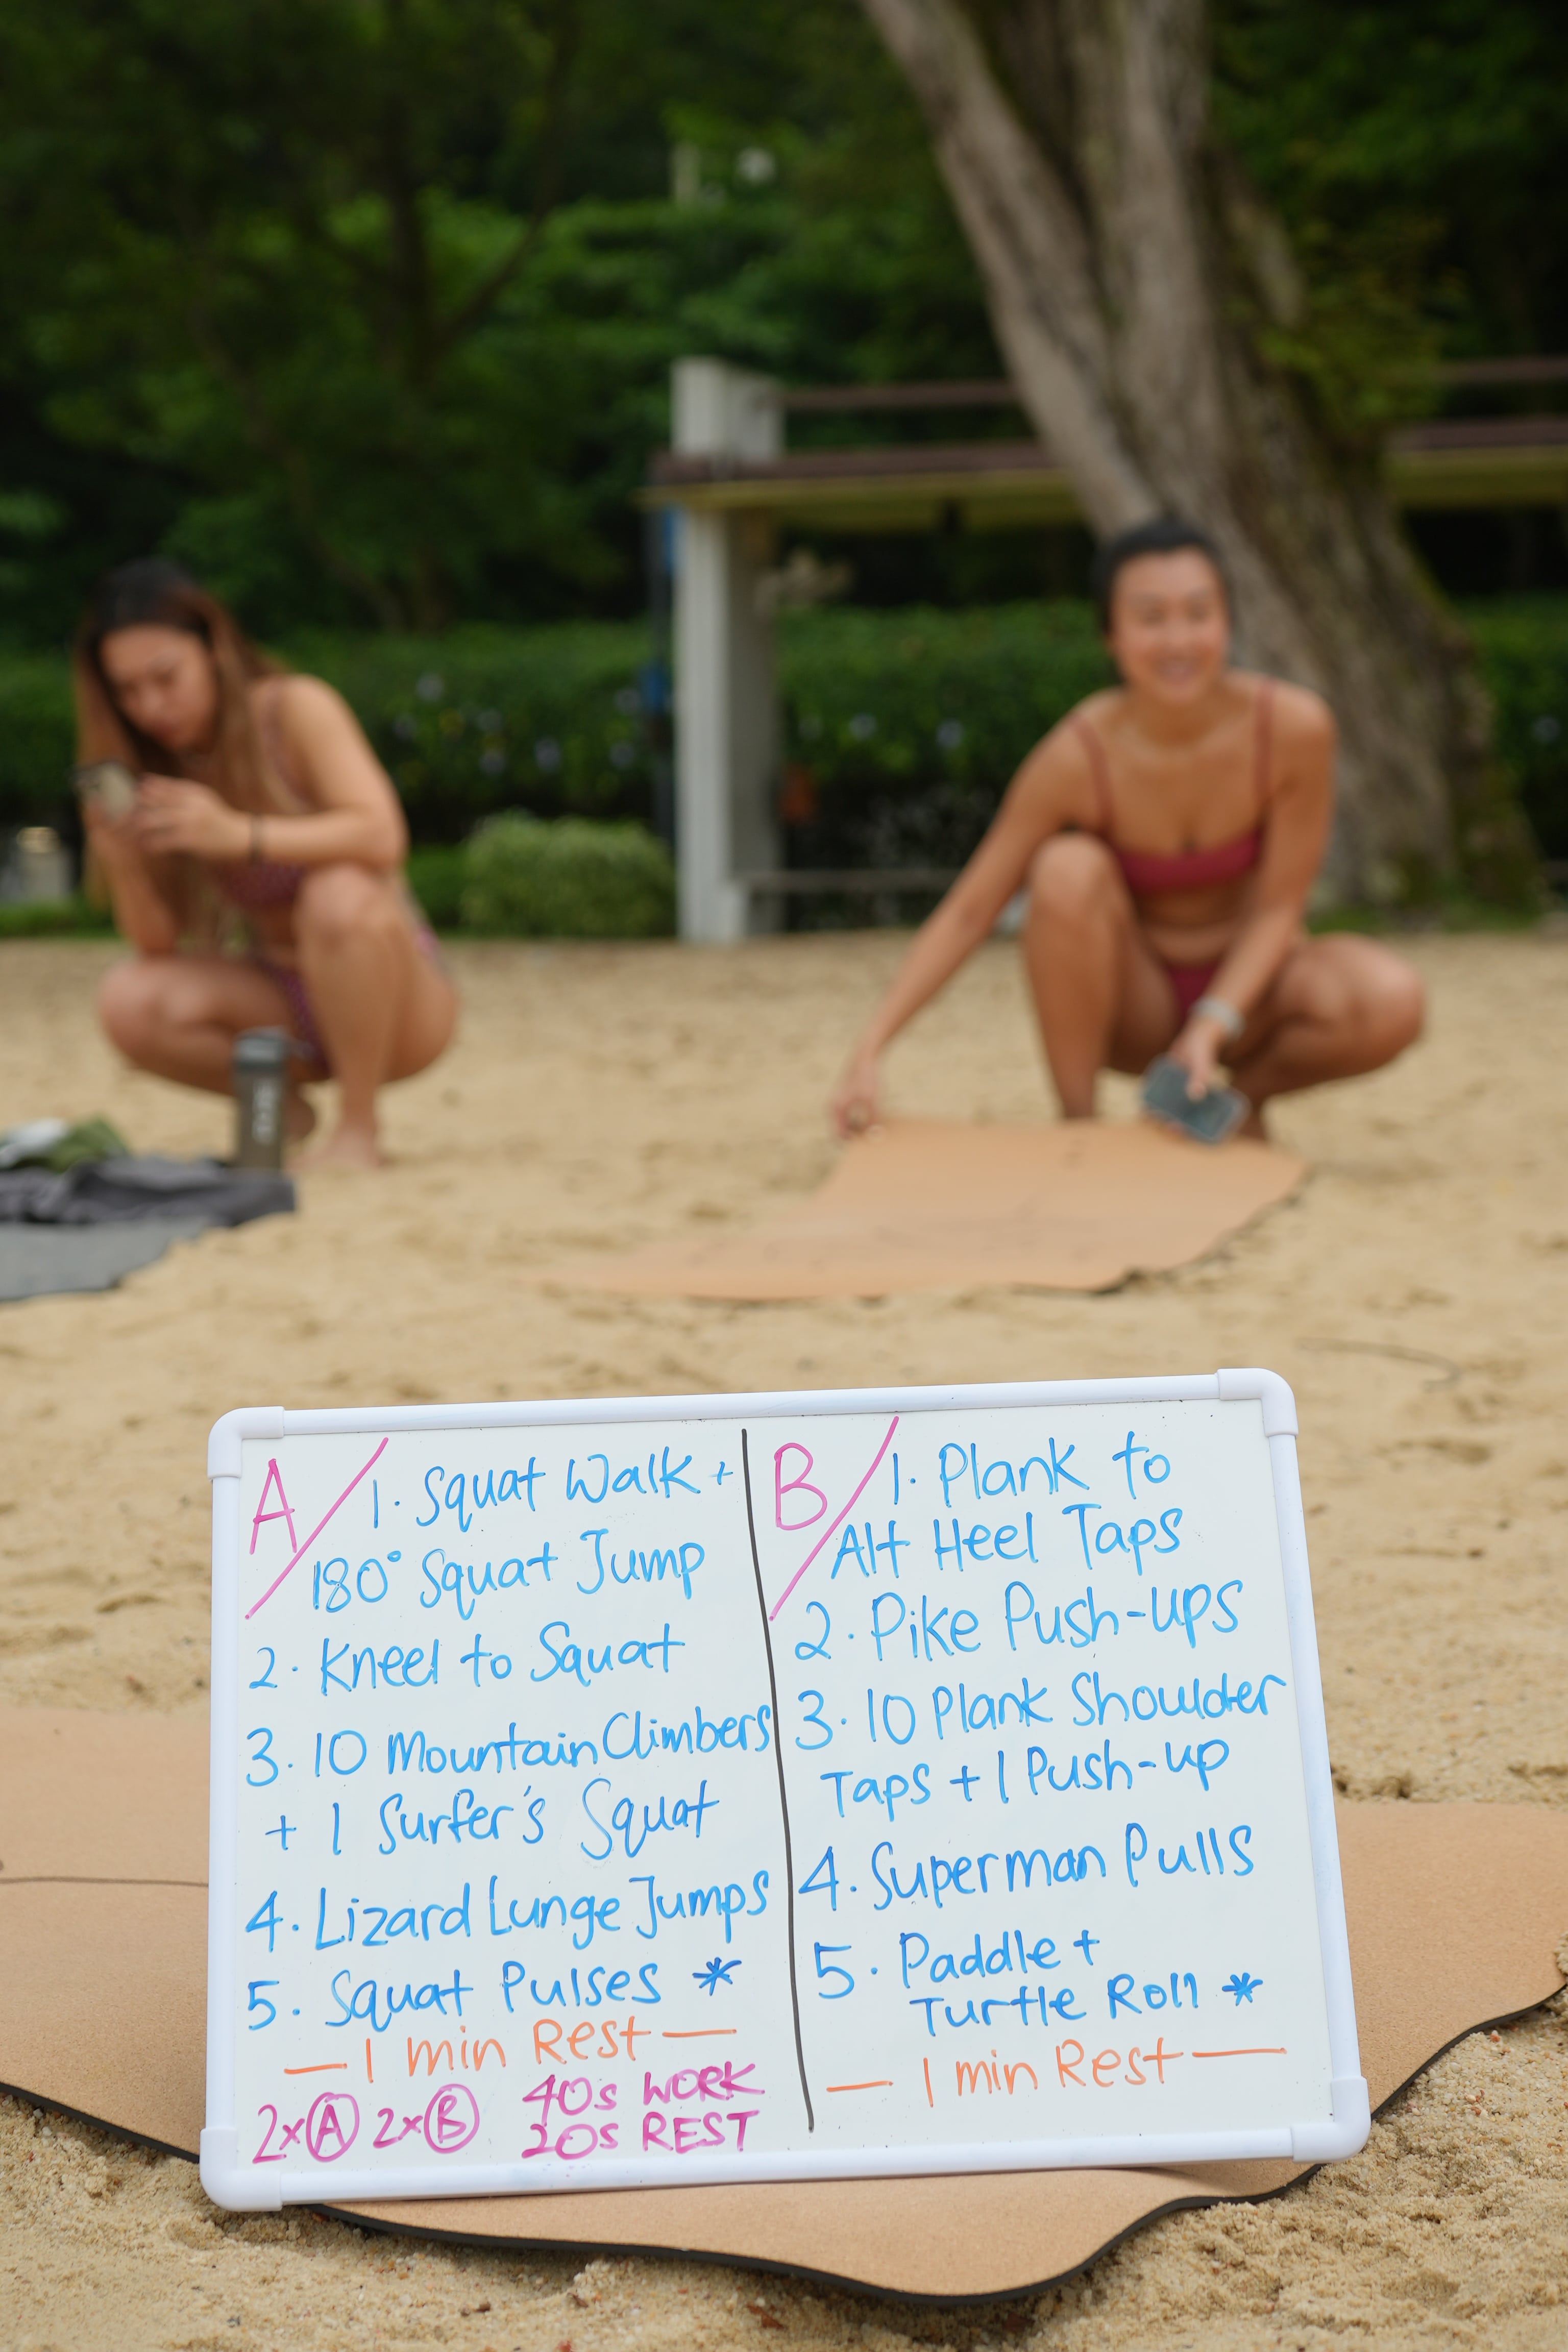 A/ 1. Squat Walk +
180° Squat Jump
2. Kneel to Squat
3. 10 Mountain Climbers
+ 1 Surfer's Squat
4. Lizard Lunge Jumps
5. Squat Pulses *
— 1 min Rest —
2x Ⓐ 2x Ⓑ 40s WORK
20s REST
B/ 1. Plank to
Alt Heel Taps
2. Pike Push-ups
3. 10 Plank Shoulder
Taps + 1 Push-up
4. Superman Pulls
5. Paddle +
Turtle Roll *
— 1 min Rest —